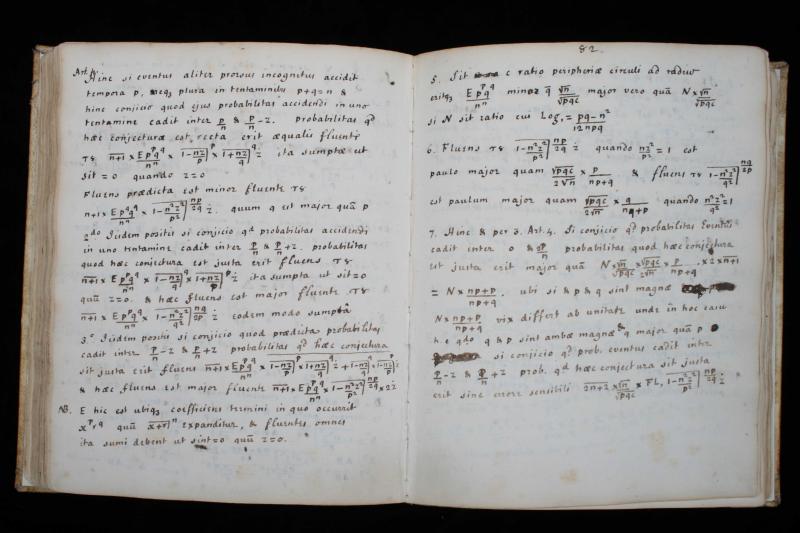 Art. 4. Hinc si eventus aliter prorsus incognitus accidit
tempora p, neq₃ plura in tentaminibus p+q=n &
hinc conjicio quod ejus probabilitas accidendi in uno
tentamine cadit inter p/n & p/n − z. probabilitas qd
hæc conjectura est recta erit æqualis fluenti
n+1 × E p^p q^q / n^n × 1 − nz/p |^p × 1 + nz/q |^q ż ita sumptæ ut
sit = 0 quando z=0
Fluens prædicta est minor fluente
n+1 × E p^p q^q / n^n × 1 − n²z²/p² |^np/2q ż. quum q est major quā p
2do Iisdem positis si conjicio qd probabilitas accidendi
in uno tentamine cadit inter p/n & p/n + z. probabilitas
quod hæc conjectura est justa erit fluens
n+1 × E p^p q^q / n^n × 1 − nz/q |^q × 1 + nz/p |^p ż ita sumpta ut sit=0
quū z=0. & hæc fluens est major fluente
n+1 × E p^p q^q / n^n × 1 − n²z²/q² |^nq/2p ż eodem modo sumptâ
3.° Iisdem positis si conjicio quod prædicta probabilitas
cadit inter p/n − z & p/n + z probabilitas qd hæc conjectura
sit justa erit fluens n+1 × E p^p q^q / n^n × 1 − nz/p |^p × 1 + nz/q |^q ż + 1 − nz/q |^q × 1 + nz/p |^p ż
& hæc fluens est major fluente n+1 × E p^p q^q / n^n × 1 − n²z²/p² |^np/2q × 2ż
NB. E hic est ubiq₃ coefficiens termini in quo occurrit
x^p r^q quū x+r |^n expanditur, & fluentes omnes
ita sumi debent ut sint=0 quū z=0.
82
5. Sit c ratio peripheriæ circuli ad radiū
eritq₃ E p^p q^q / n^n minor q̄ √n / √pqc major vero quā N × √n / √pqc
si N sit ratio cui Log. = pq − n² / 12npq
6. Fluens 1 − n²z²/p² |^np/2q ż quando nz²/p² = 1 est
paulo major quam √pqc / 2√n × p / np+q & fluens 1 − n²z²/q² |^nq/2p
est paulum major quam √pqc / 2√n × q / nq+p quando n²z²/q² = 1
7. Hinc & per 3. Art. 4. Si conjicio qd probabilitas Eventus
cadit inter 0 & 2p/n probabilitas quod hæc conjectura
est justa erit major quā N √n / √pqc × √pqc / 2√n × p / np+q × 2 × n+1
= N × np+p / np+q. ubi si & p & q sint magnæ
N × np+p / np+q vix differt ab unitate unde in hoc casu
h e qdo q & p sint ambæ magnæ & q major quā p
si conjicio qd prob. eventus cadit inter
p/n − z & p/n + z prob. qd hæc conjectura sit justa
erit sine errore sensibili 2n+2 × √n / √pqc × FL, 1 − n²z²/p² |^np/2q ż